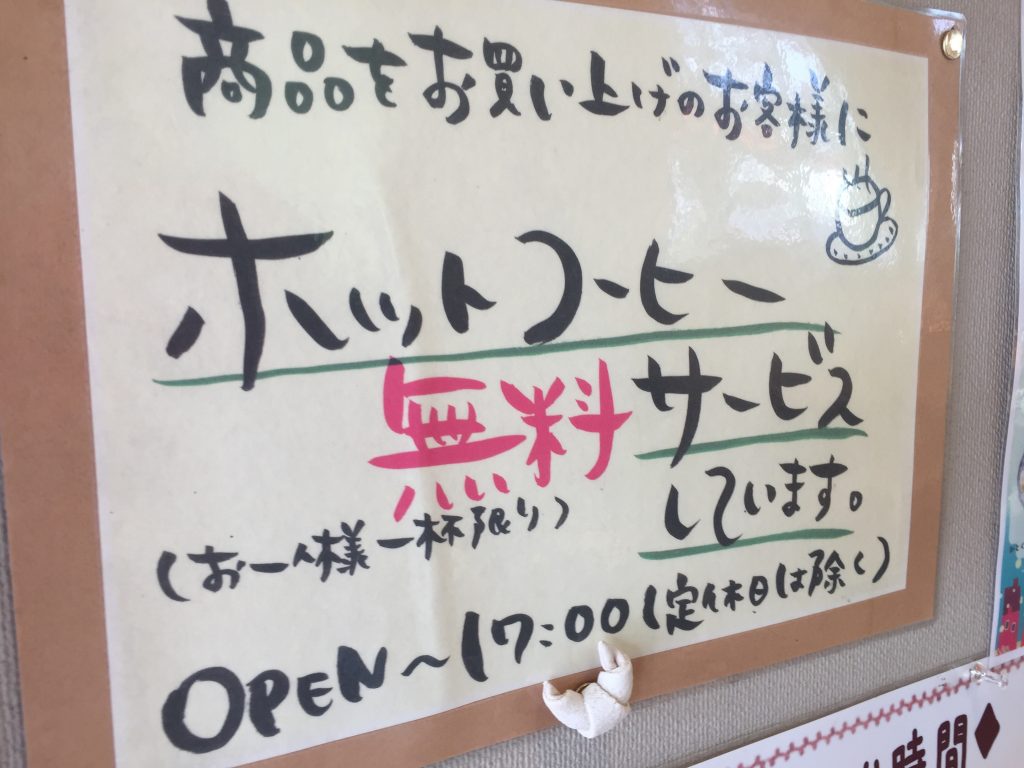 商品をお買い上げのお客様に
ホットコーヒー
無料サービス
しています。
(お一人様一杯限り)
OPEN～17:00(定休日は除く)
時間◆